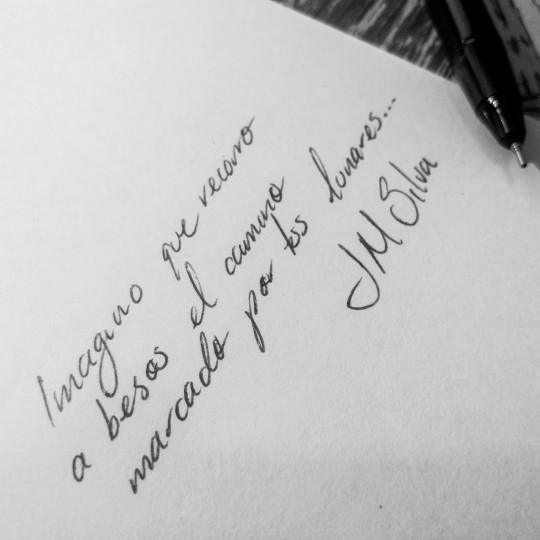 Imagino que recorro
a besos el camino
marcado por tus lunares...
JM Silva